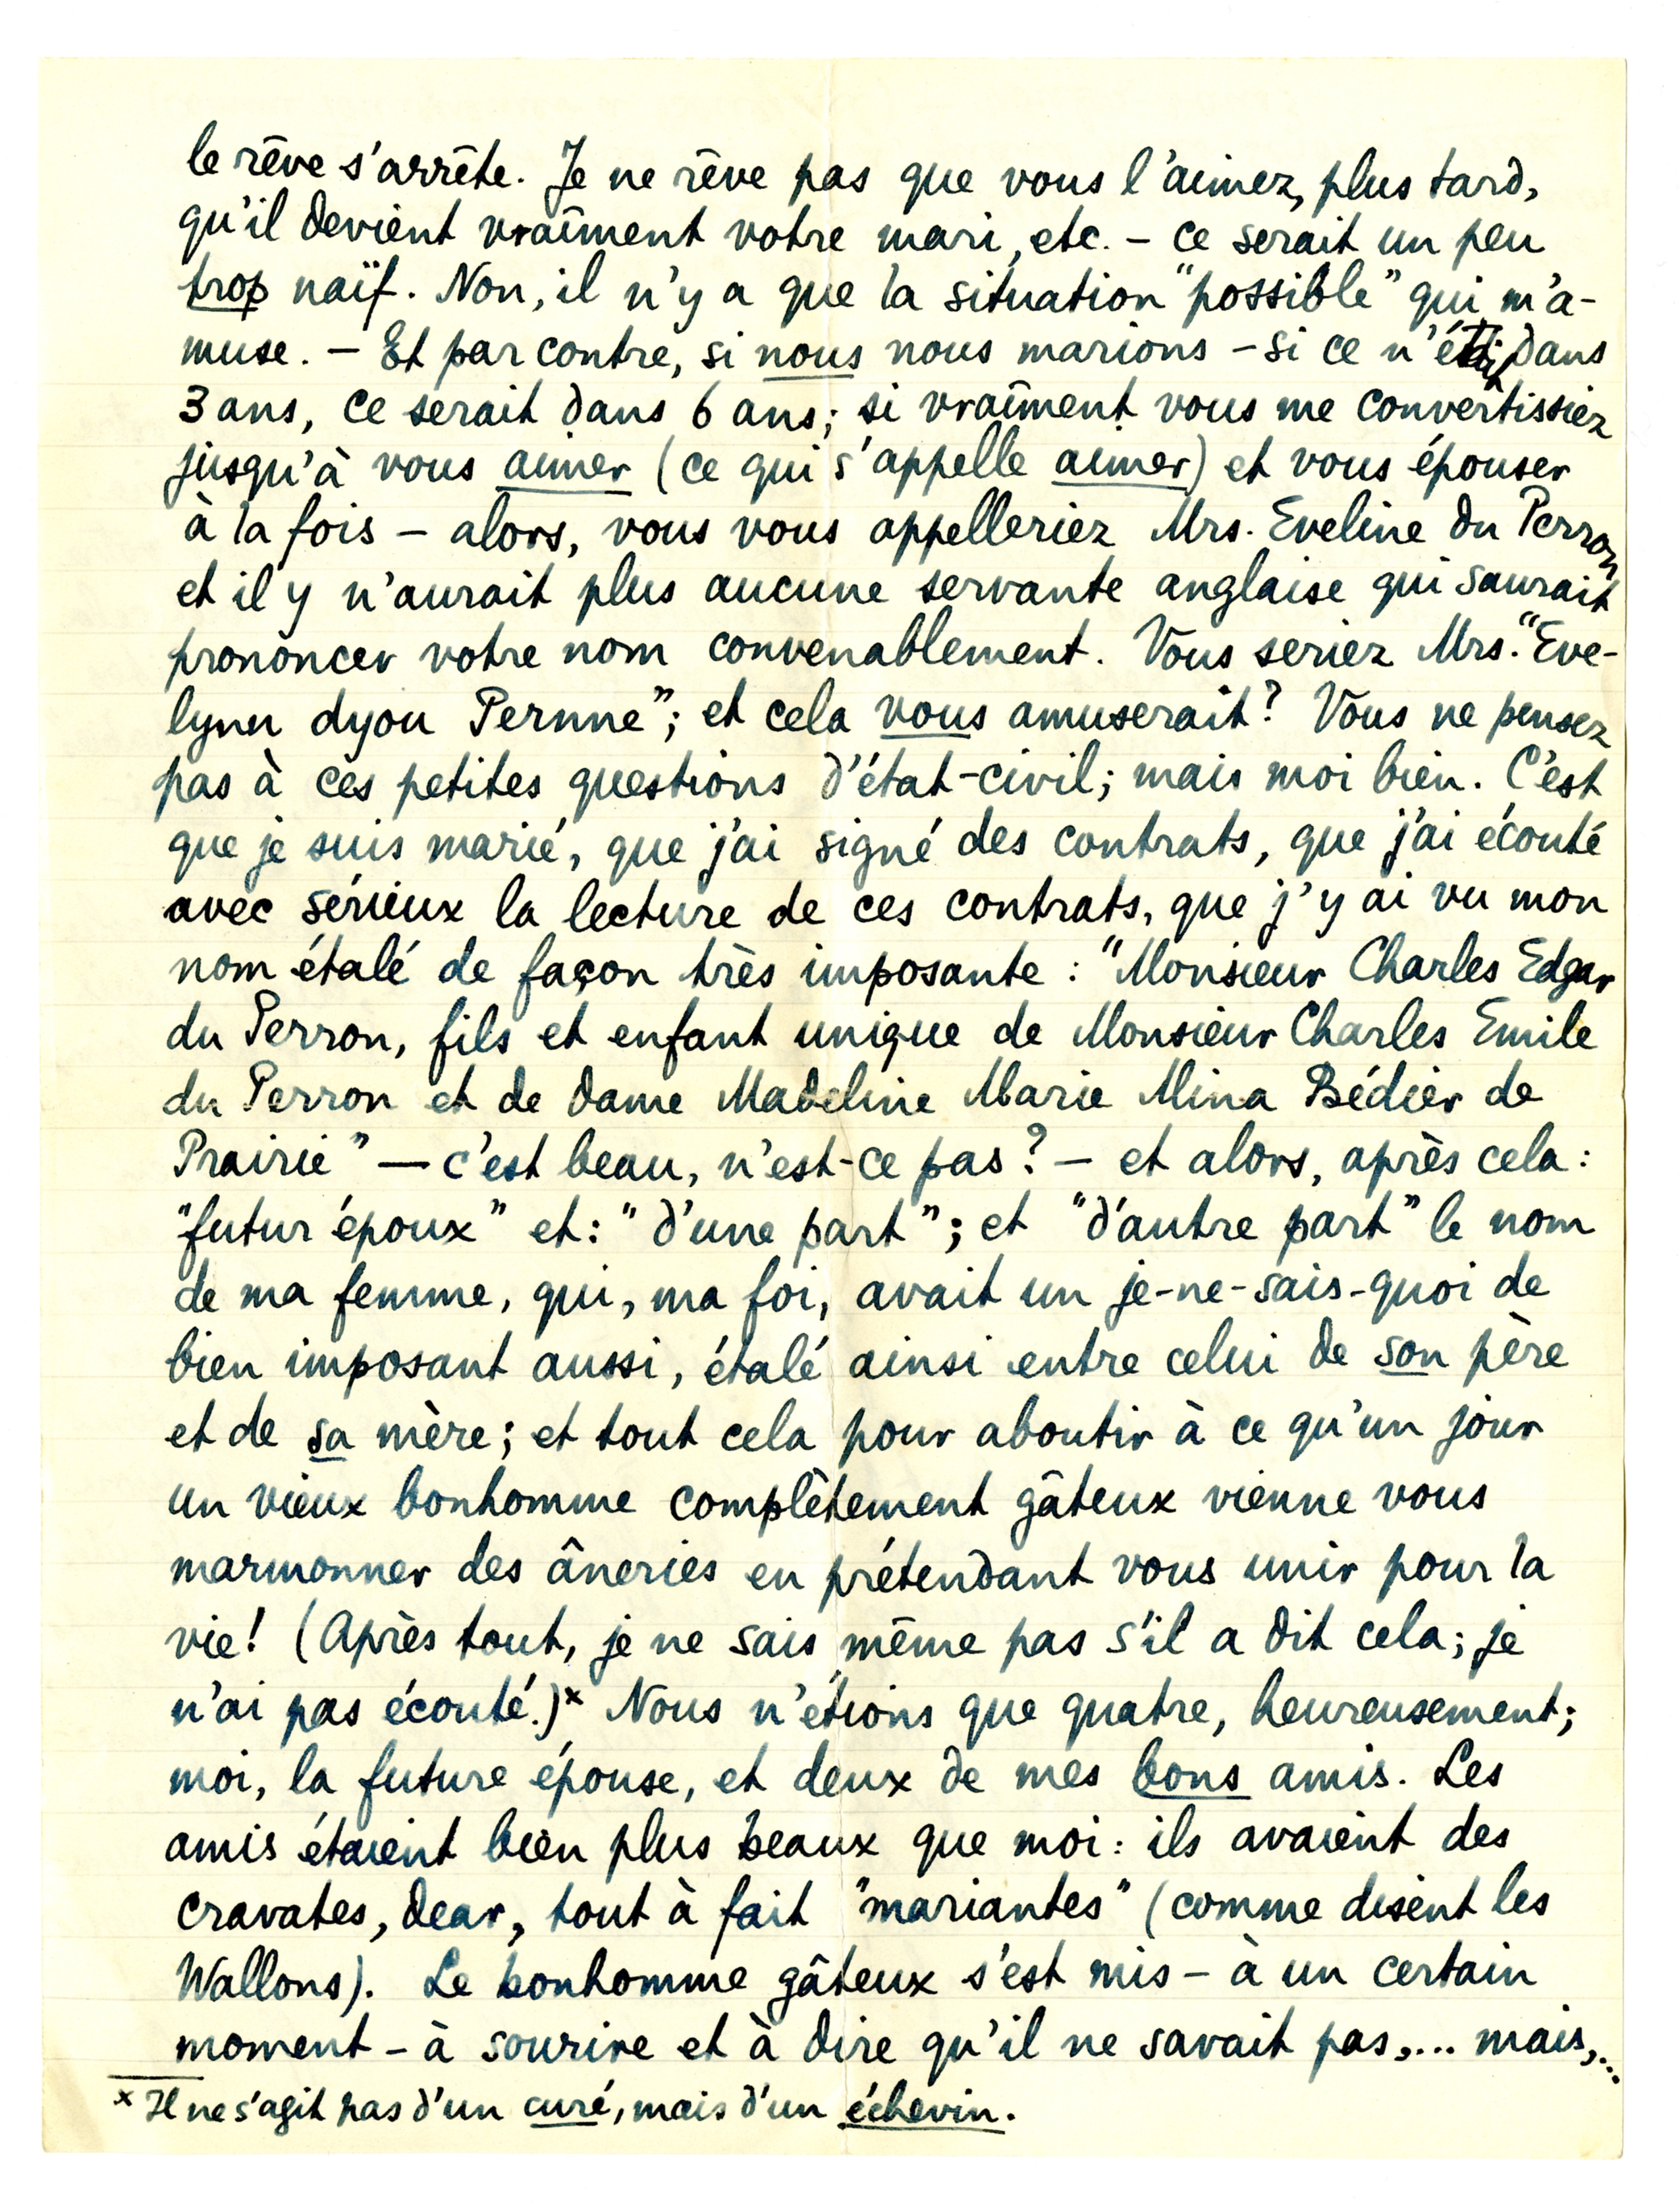 le rêve s'arrête. Je ne rêve pas que vous l'aimez, plus tard,
qu'il devient vraîment votre mari, etc. – ce serait un peu
trop naïf. Non, il n'y a que la situation "possible" qui m'a-
muse. – Et par contre, si nous nous marions – si ce n'était dans
3 ans, ce serait dans 6 ans; si vraîment vous me convertissiez
jusqu'à vous aimer (ce qui s'appelle aimer) et vous épouser
à la fois – alors, vous vous appelleriez Mrs. Eveline du Perron
et il y n'aurait plus aucune servante anglaise qui saurait
prononcer votre nom convenablement. Vous seriez Mrs. "Eve-
lynn dyou Pernne"; et cela vous amuserait? Vous ne pensez
pas à ces petites questions d'état-civil; mais moi bien. C'est
que je suis marié, que j'ai signé des contrats, que j'ai écouté
avec sérieux la lecture de ces contrats, que j'y ai vu mon
nom étalé de façon très imposante : "Monsieur Charles Edgar
du Perron, fils et enfant unique de Monsieur Charles Emile
du Perron et de dame Madeline Marie Mina Bédier de
Prairie" — c'est beau, n'est-ce pas? – et alors, après cela:
"futur époux" et: "d'une part"; et "d'autre part" le nom
de ma femme, qui, ma foi, avait un je-ne-sais-quoi de
bien imposant aussi, étalé ainsi entre celui de son père
et de sa mère; et tout cela pour aboutir à ce qu'un jour
un vieux bonhomme complètement gâteux vienne vous
marmonner des âneries en prétendant vous unir pour la
vie! (Après tout, je ne sais même pas s'il a dit cela; je
n'ai pas écouté.)x Nous n'étions que quatre, heureusement;
moi, la future épouse, et deux de mes bons amis. Les
amis étaient bien plus beaux que moi: ils avaient des
cravates, dear, tout à fait "mariantes" (comme disent les
Wallons). Le bonhomme gâteux s'est mis – à un certain
moment – à sourire et à dire qu'il ne savait pas,... mais,...
x Il ne s'agit pas d'un curé, mais d'un échevin.